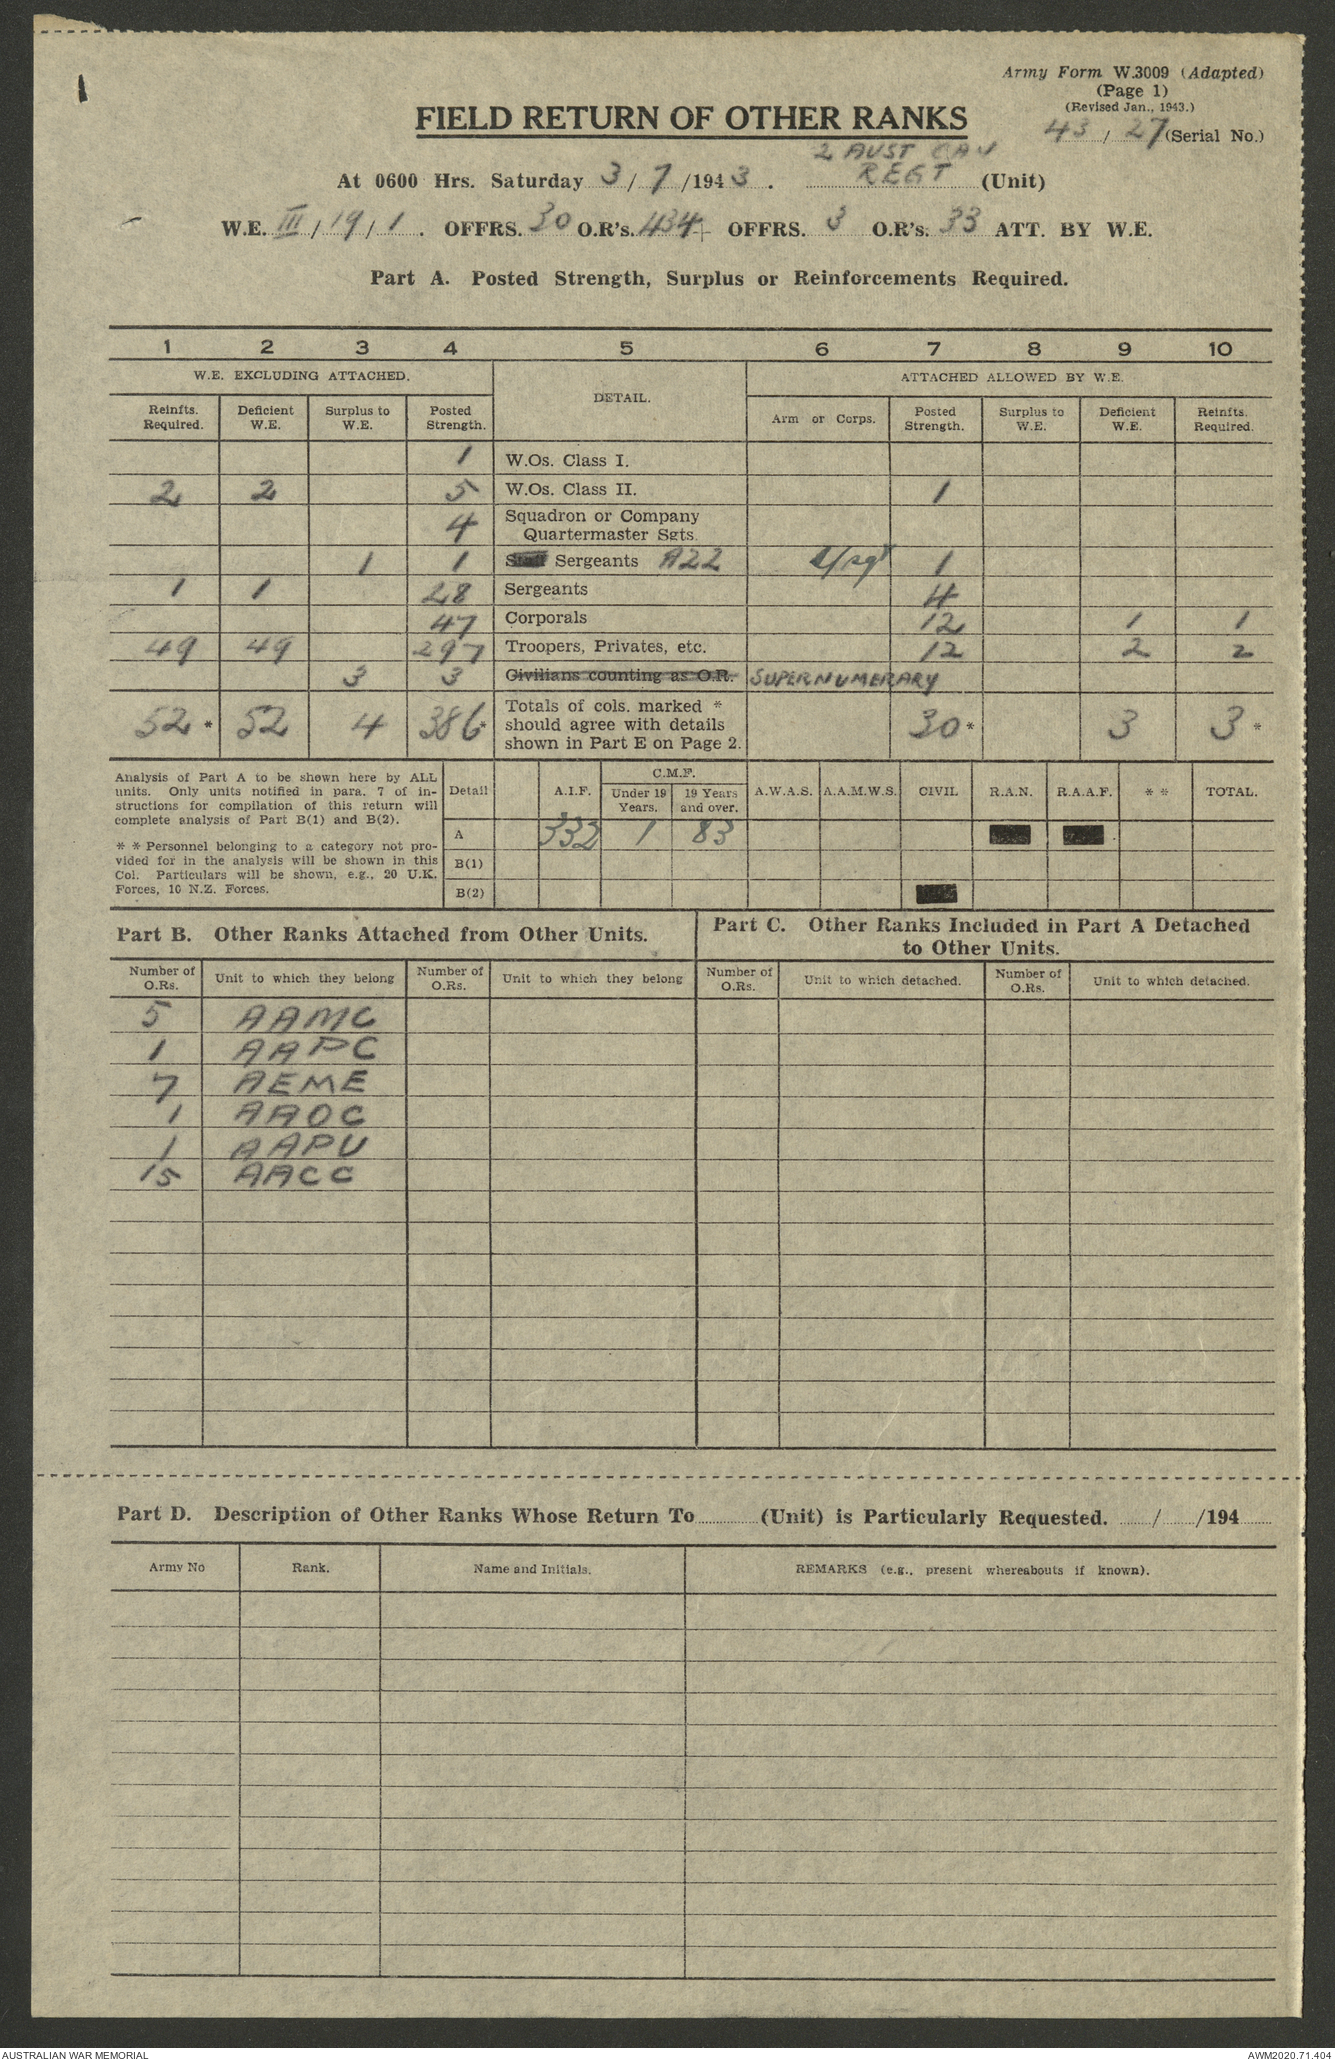 Army Form W.3009 (Adapted)
(Page 1)
(Revised Jan., 1943.)
43 / 27 (Serial No.)
FIELD RETURN OF OTHER RANKS
2 AUST CAV
At 0600 Hrs. Saturday 3 / 7 /1943. REGT (Unit)
W.E. III / 19 / 1 . OFFRS. 30 O.R's. 434+ OFFRS. 3 O.R's. 33 ATT. BY W.E.
Part A. Posted Strength, Surplus or Reinforcements Required.
1 2 3 4 5 6 7 8 9 10
W.E. EXCLUDING ATTACHED. DETAIL. ATTACHED ALLOWED BY W.E.
Reinfts. Required. Deficient W.E. Surplus to W.E. Posted Strength. Arm or Corps. Posted Strength. Surplus to W.E. Deficient W.E. Reinfts. Required.
1 W.Os. Class I.
2 2 5 W.Os. Class II. 1
4 Squadron or Company Quartermaster Sgts.
1 1 Staff Sergeants A22 L/sgt 1
1 1 28 Sergeants 4
47 Corporals 12 1 1
49 49 297 Troopers, Privates, etc. 12 2 2
3 3 Civilians counting as O.R. SUPERNUMERARY
52* 52 4 386* Totals of cols. marked * should agree with details shown in Part E on Page 2. 30* 3 3*
Analysis of Part A to be shown here by ALL
units. Only units notified in para. 7 of in-
structions for compilation of this return will
complete analysis of Part B(1) and B(2).
* * Personnel belonging to a category not pro-
vided for in the analysis will be shown in this
Col. Particulars will be shown, e.g., 20 U.K.
Forces, 10 N.Z. Forces.
Detail A.I.F. C.M.F. Under 19 Years. 19 Years and over. A.W.A.S. A.A.M.W.S. CIVIL R.A.N. R.A.A.F. * * TOTAL.
A 332 1 83
B(1)
B(2)
Part B. Other Ranks Attached from Other Units.
Part C. Other Ranks Included in Part A Detached
to Other Units.
Number of O.Rs. Unit to which they belong Number of O.Rs. Unit to which they belong Number of O.Rs. Unit to which detached. Number of O.Rs. Unit to which detached.
5 AAMC
1 AAPC
7 AEME
1 AAOC
1 AAPU
15 AACC
Part D. Description of Other Ranks Whose Return To (Unit) is Particularly Requested. / /194
Army No Rank. Name and Initials. REMARKS (e.g., present whereabouts if known).
AUSTRALIAN WAR MEMORIAL AWM2020.71.404